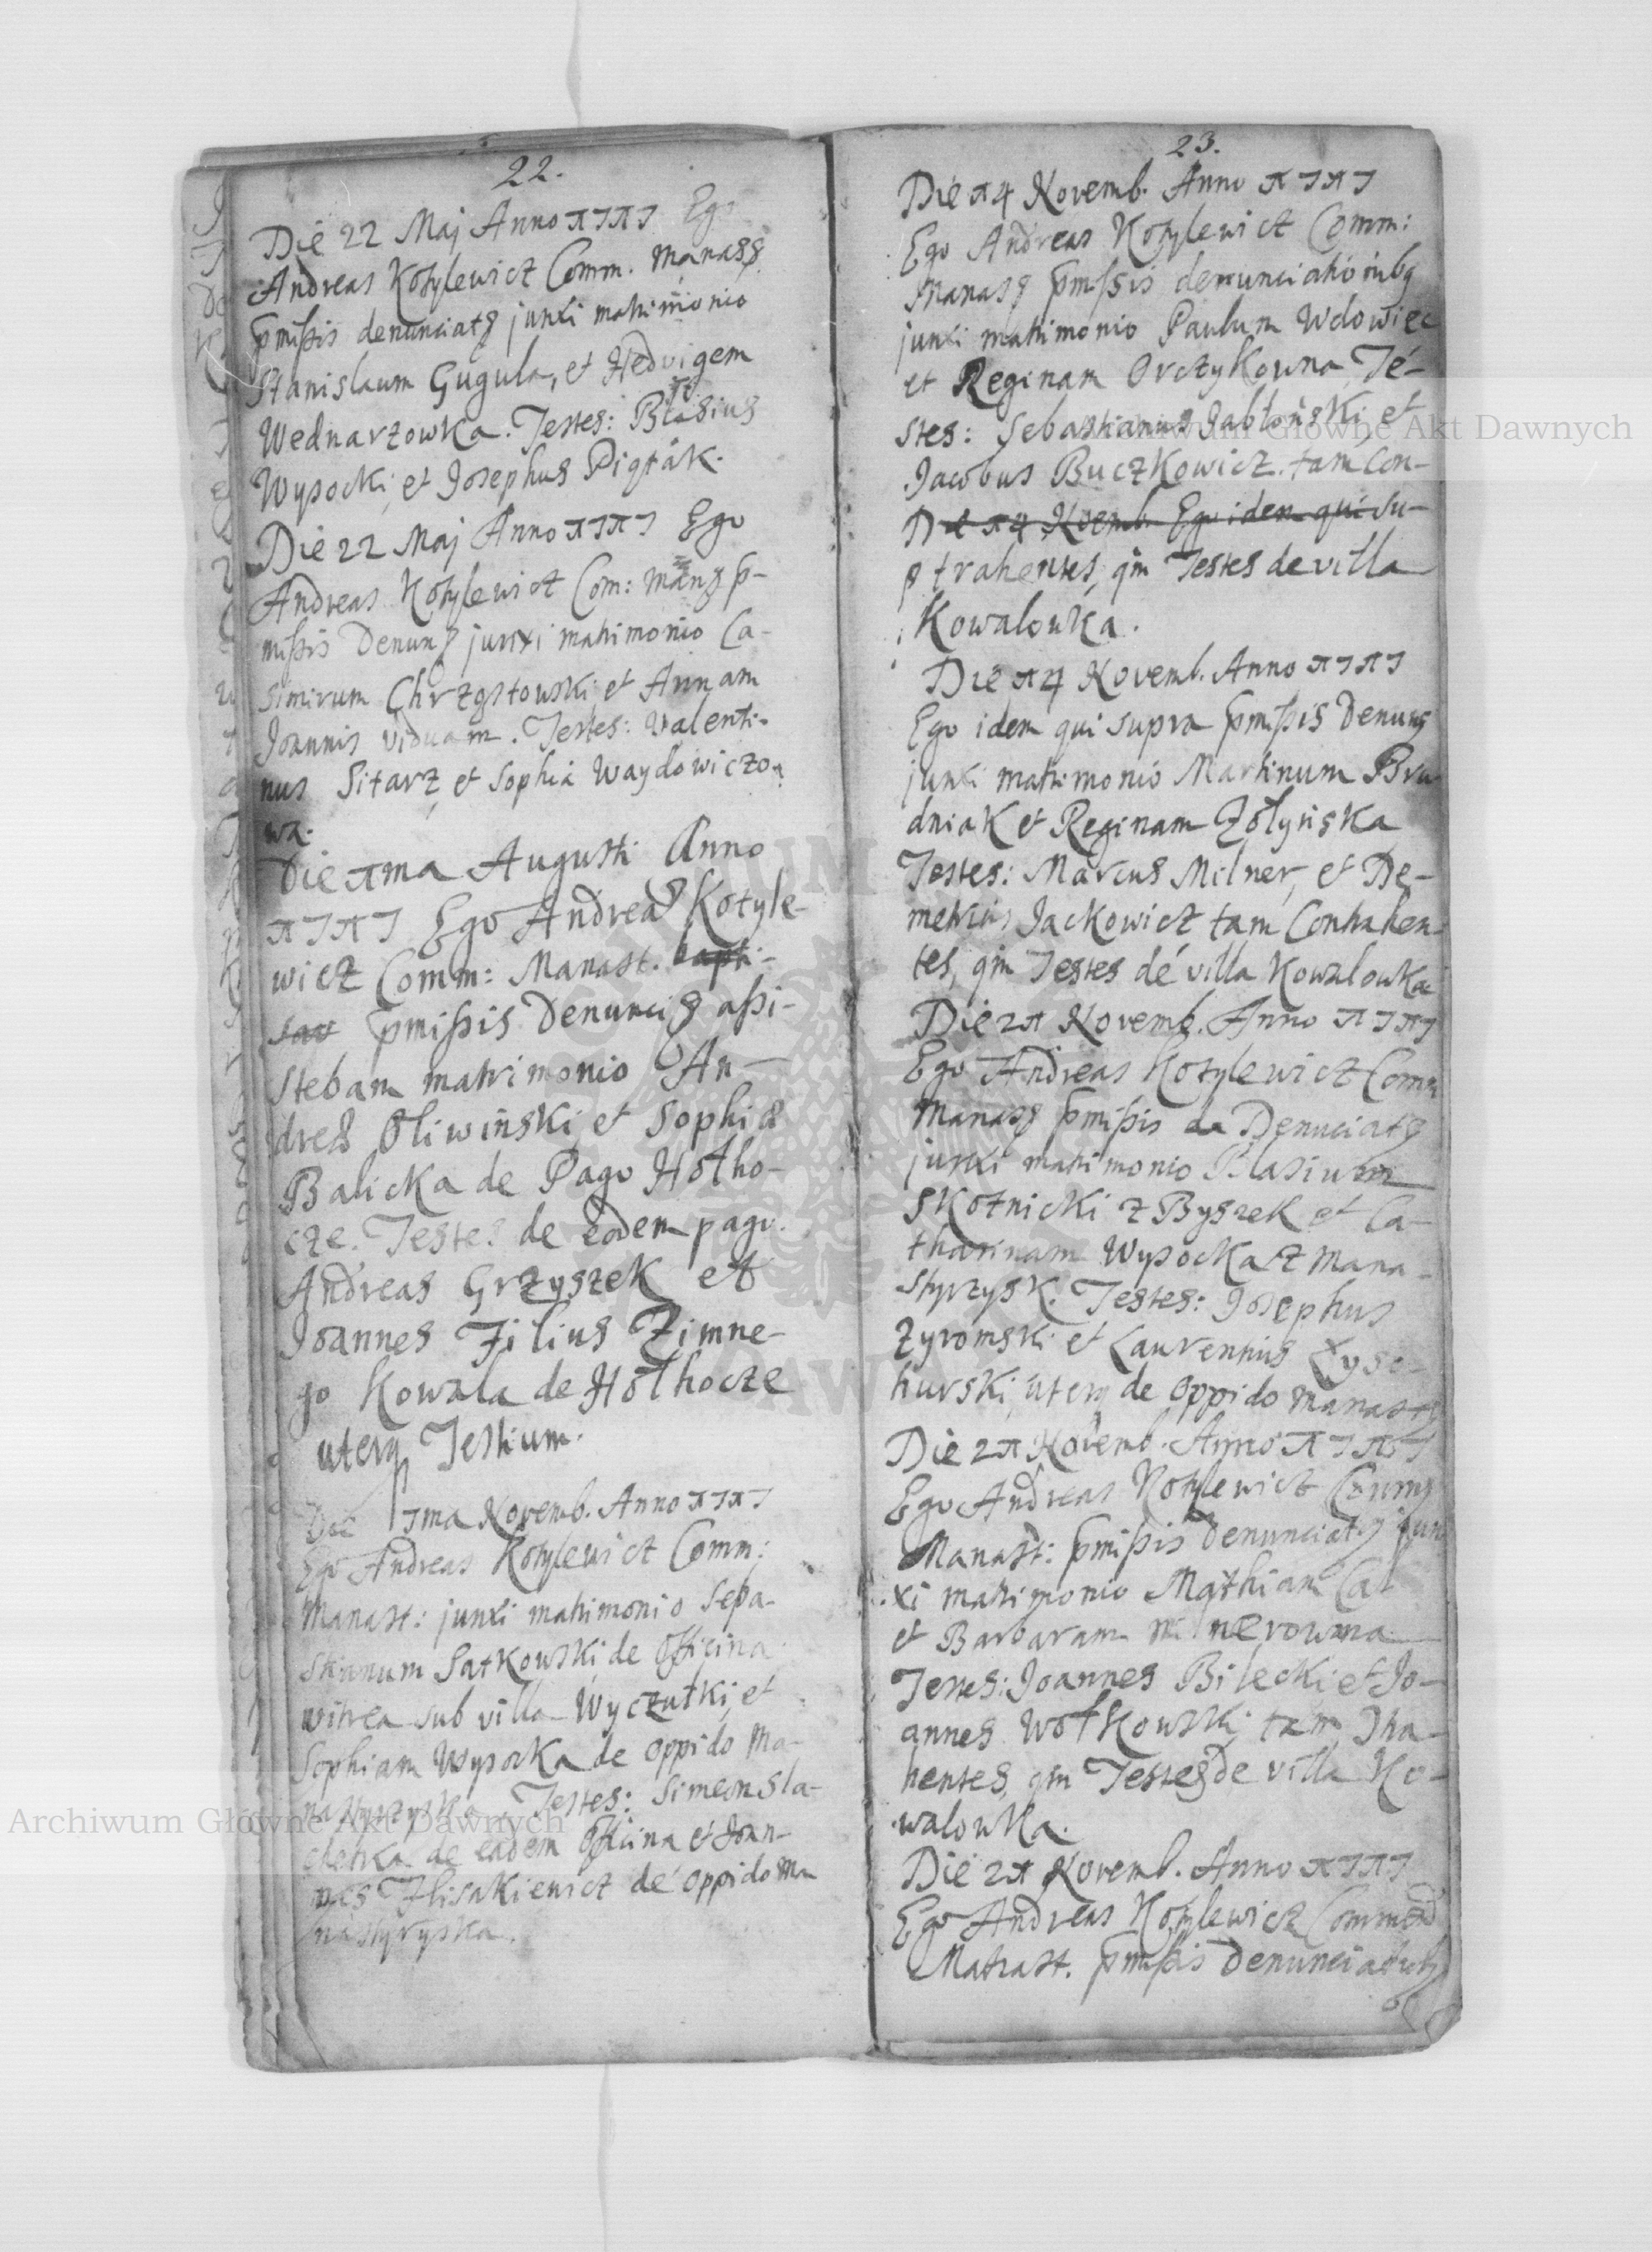 22.
Die 22 Maj Anno 1717 Ego
Andreas Kotylewicz Comm. Manasẞ
p̄mißis denunciatẞ junxi matrimonio
Stanislaum Gugula, et Hedvigem
Wednarzowka. Testes: Blasius
Wysocki, et Josephus Piątak.
Die 22 Maj Anno 1717 Ego
Andreas Kotylewicz Com: Manẞ p̄-
mißis Denunẞ junxi matrimonio Ca-
simirum Chrząstowski et Annam
Joannis viduam. Testes: Valenti-
nus Sitarz, et Sophia Waydowiczo-
wa.
Die 1ma Augusti Anno
1717 Ego Andreas Kotyle-
wicz Comm: Manast. bapti-
sav p̄mißis Denunciẞ aßi-
stebam matrimonio An-
dreæ Oliwiński, et Sophiæ
Balicka de Pago Hołho-
cze. Testes de eodem pago.
Andreas Grzyszek et
Joannes Filius Zimne-
go Kowala de Hołhocze
uterq Testium.
Die 7ma Novemb. Anno 1717
Ego Andreas Kotylewicz Comm:
Manast: junxi matrimonio Seba-
stianum Satkowski de Officina
vitrea sub villa Wyczułki, et
Sophiam Wysocka de Oppido Ma-
nastyrzyska. Testes: Simeon
de eadem Officina et Joan-
nes Hlisakiewicz de Oppido Ma
nastyryska.
23.
Die 14 Novemb. Anno 1717
Ego Andreas Kotylewicz Comm:
Manasẞ p̄mißis denunciationibq
junxi matrimonio Paulum Wdowiec
et Reginam Orczykowna, Te-
stes: Sebastianus Jabłoński, et
Jacobus Buczkowicz. tam Con-
Die 14 Novemb. Ego idem qui su-
p trahentes, qm Testes de villa
Kowalowka.
Die 14 Novemb. Anno 1717
Ego idem qui supra p̄mißis Denunẞ
junxi matrimonio Martinum Bru
dniak et Reginam Zołyńska
Testes: Marcus Milner, et De-
metrius Jackowicz tam Contrahen-
tes, qm Testes de villa Kowalowka
Die 21 Novemb. Anno 1717
Ego Andreas Kotylewicz Comm
Manasẞ p̄mißis de Denuciatẞ
junxi matrimonio Blasium
Skotnicki z Byszek et Ca-
tharinam Wysocka z Mana-
styrzysk. Testes: Josephus
Zyromski et Laurentius Łyso-
hurski, uterq de Oppido Manastẞ
Die 21 Novemb. Anno 1717
Ego Andreas Kotylewicz Comm
Manast: p̄mißis Denunciatẞ jun
xi matrimonio Mathiam Cal
et Barbaram Milnerowna
Testes: Joannes Bilecki et Jo-
annes Wołkowski, tam
hentes, qm Testes de villa Ko-
walowka.
Die 21 Novemb. Anno 1717
Ego Andreas Kotylewicz Commend
Manast. p̄mißis Denunciatio
Archiwum Główne Akt Dawnych
Archiwum Główne Akt Dawnych